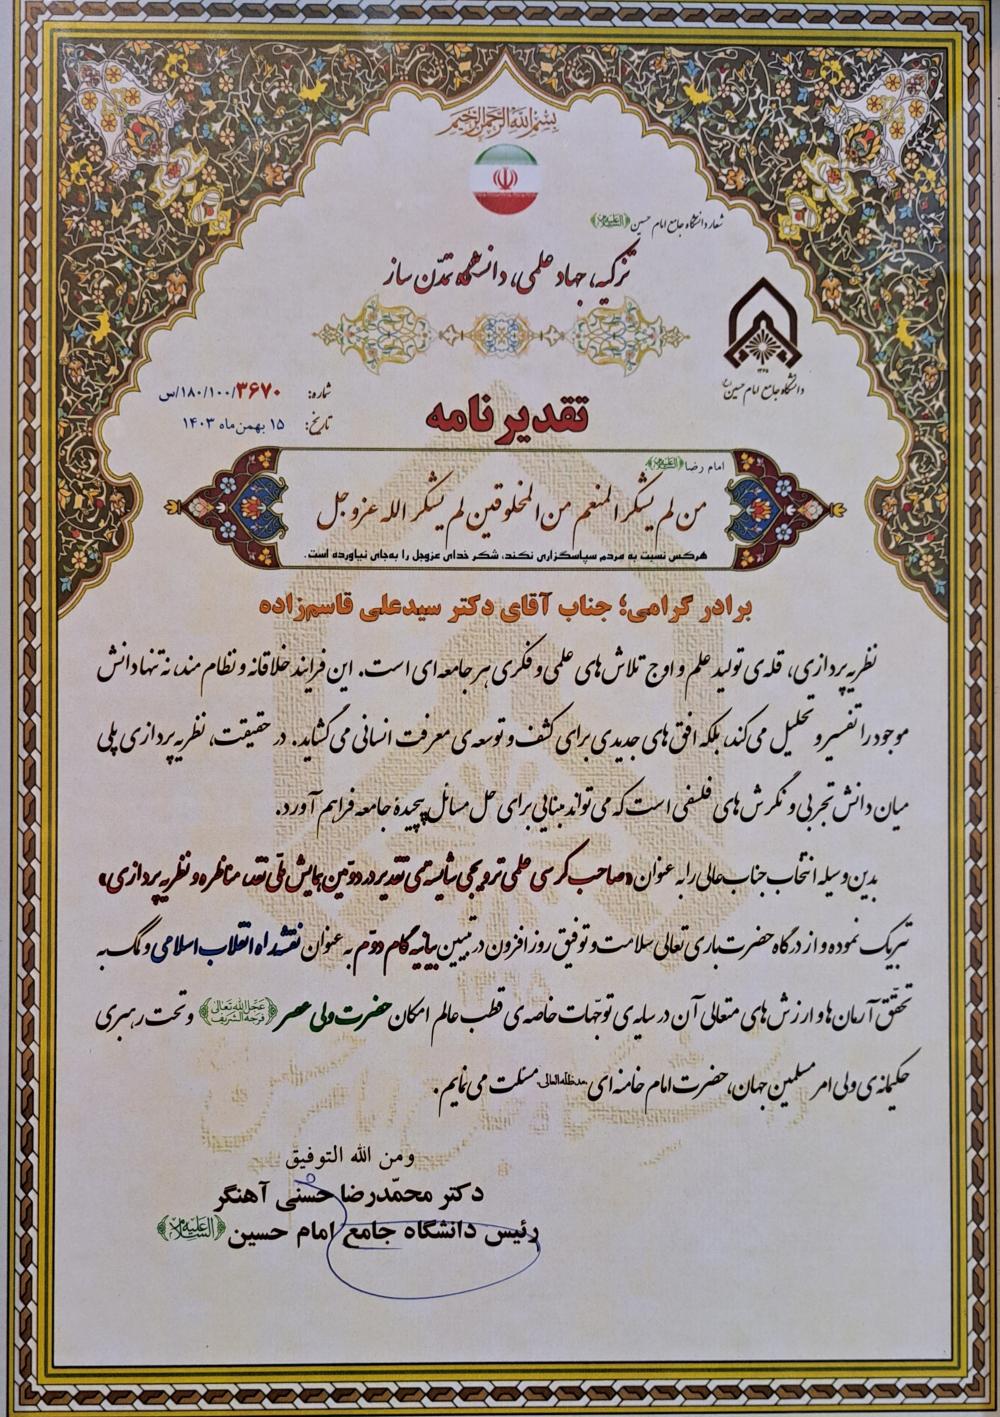 بسم الله الرحمن الرحیم
شعار دانشگاه جامع امام حسین (علیه‌السلام)
تزکیه، جهاد علمی، دانشگاه تمدّن ساز
۱۳۶۵
دانشگاه جامع امام حسین (ع)
شماره: ۳۶۷۰/۱۰۰/۱۸۰/س
تاریخ: ۱۵ بهمن‌ماه ۱۴۰۳
تقدیرنامه
امام رضا (علیه‌السلام):
من لم یشکر المنعم من المخلوقین لم یشکر الله عزوجل
هرکس نسبت به مردم سپاسگزاری نکند، شکر خدای عزوجل را به‌جای نیاورده است.
برادر گرامی؛ جناب آقای دکتر سیدعلی قاسم‌زاده
نظریه‌پردازی، قله‌ی تولید علم و اوج تلاش‌های علمی و فکری هر جامعه‌ای است. این فرایند خلاقانه و نظام‌مند، نه تنها دانش
موجود را تفسیر و تحلیل می‌کند، بلکه افق‌های جدیدی برای کشف و توسعه‌ی معرفت انسانی می‌گشاید. در حقیقت، نظریه‌پردازی پلی
میان دانش تجربی و نگرش‌های فلسفی است که می‌تواند مبنایی برای حل مسائل پیچیدهٔ جامعه فراهم آورد.
بدین وسیله انتخاب جناب‌عالی را به عنوان «صاحب کرسی علمی ترویجی شایسته‌ی تقدیر در دومین همایش ملّی نقد، مناظره و نظریه‌پردازی»
تبریک نموده و از درگاه حضرت باری تعالی سلامت و توفیق روز افزون در تبیین بیانیه گام دوّم به عنوان نقشه راه انقلاب اسلامی و کمک به
تحقّق آرمان‌ها و ارزش‌های متعالی آن در سایه‌ی توجّهات خاصه‌ی قطب عالم امکان حضرت ولی عصر (عجل الله تعالی فرجه الشریف) و تحت رهبری
حکیمانه‌ی ولی امر مسلمین جهان، حضرت امام خامنه‌ای مدظله‌العالی مسئلت می‌نمایم.
ومن الله التوفیق
دکتر محمّدرضا حسنی آهنگر
رئیس دانشگاه جامع امام حسین (علیه‌السلام)